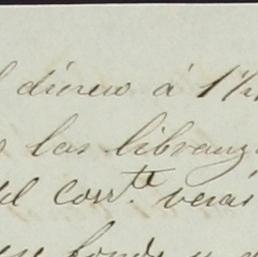 l dinero á 1½
las libranz
del corr.te verás
fondo y d